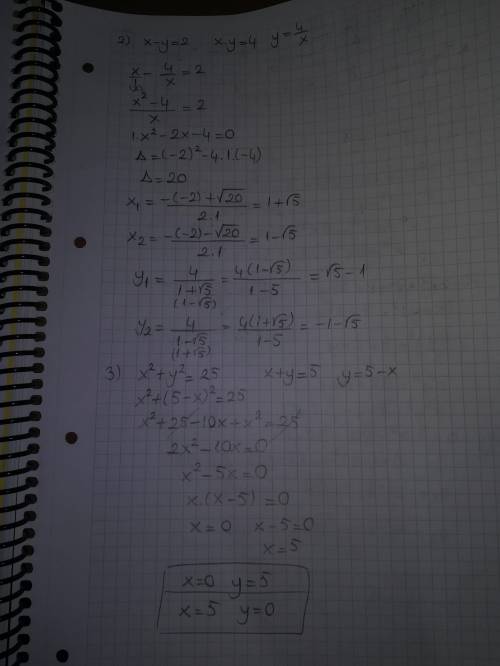 2) x-y=2 x·y=4 y=4/x
x/1 - 4/x = 2
(x²-4)/x = 2
1.x²-2x-4=0
Δ=(-2)²-4.1.(-4)
Δ=20
x₁ = (-(-2)+√20)/2.1 = 1+√5
x₂ = (-(-2)-√20)/2.1 = 1-√5
y₁ = 4/(1+√5) = 4(1-√5)/(1-5) = √5-1
(1-√5)
y₂ = 4/(1-√5) = 4(1+√5)/(1-5) = -1-√5
(1+√5)
3) x²+y²=25 x+y=5 y=5-x
x²+(5-x)²=25
x²+25-10x+x²=25
2x²-10x=0
x²-5x=0
x.(x-5)=0
x=0 x-5=0
x=5
x=0 y=5
x=5 y=0